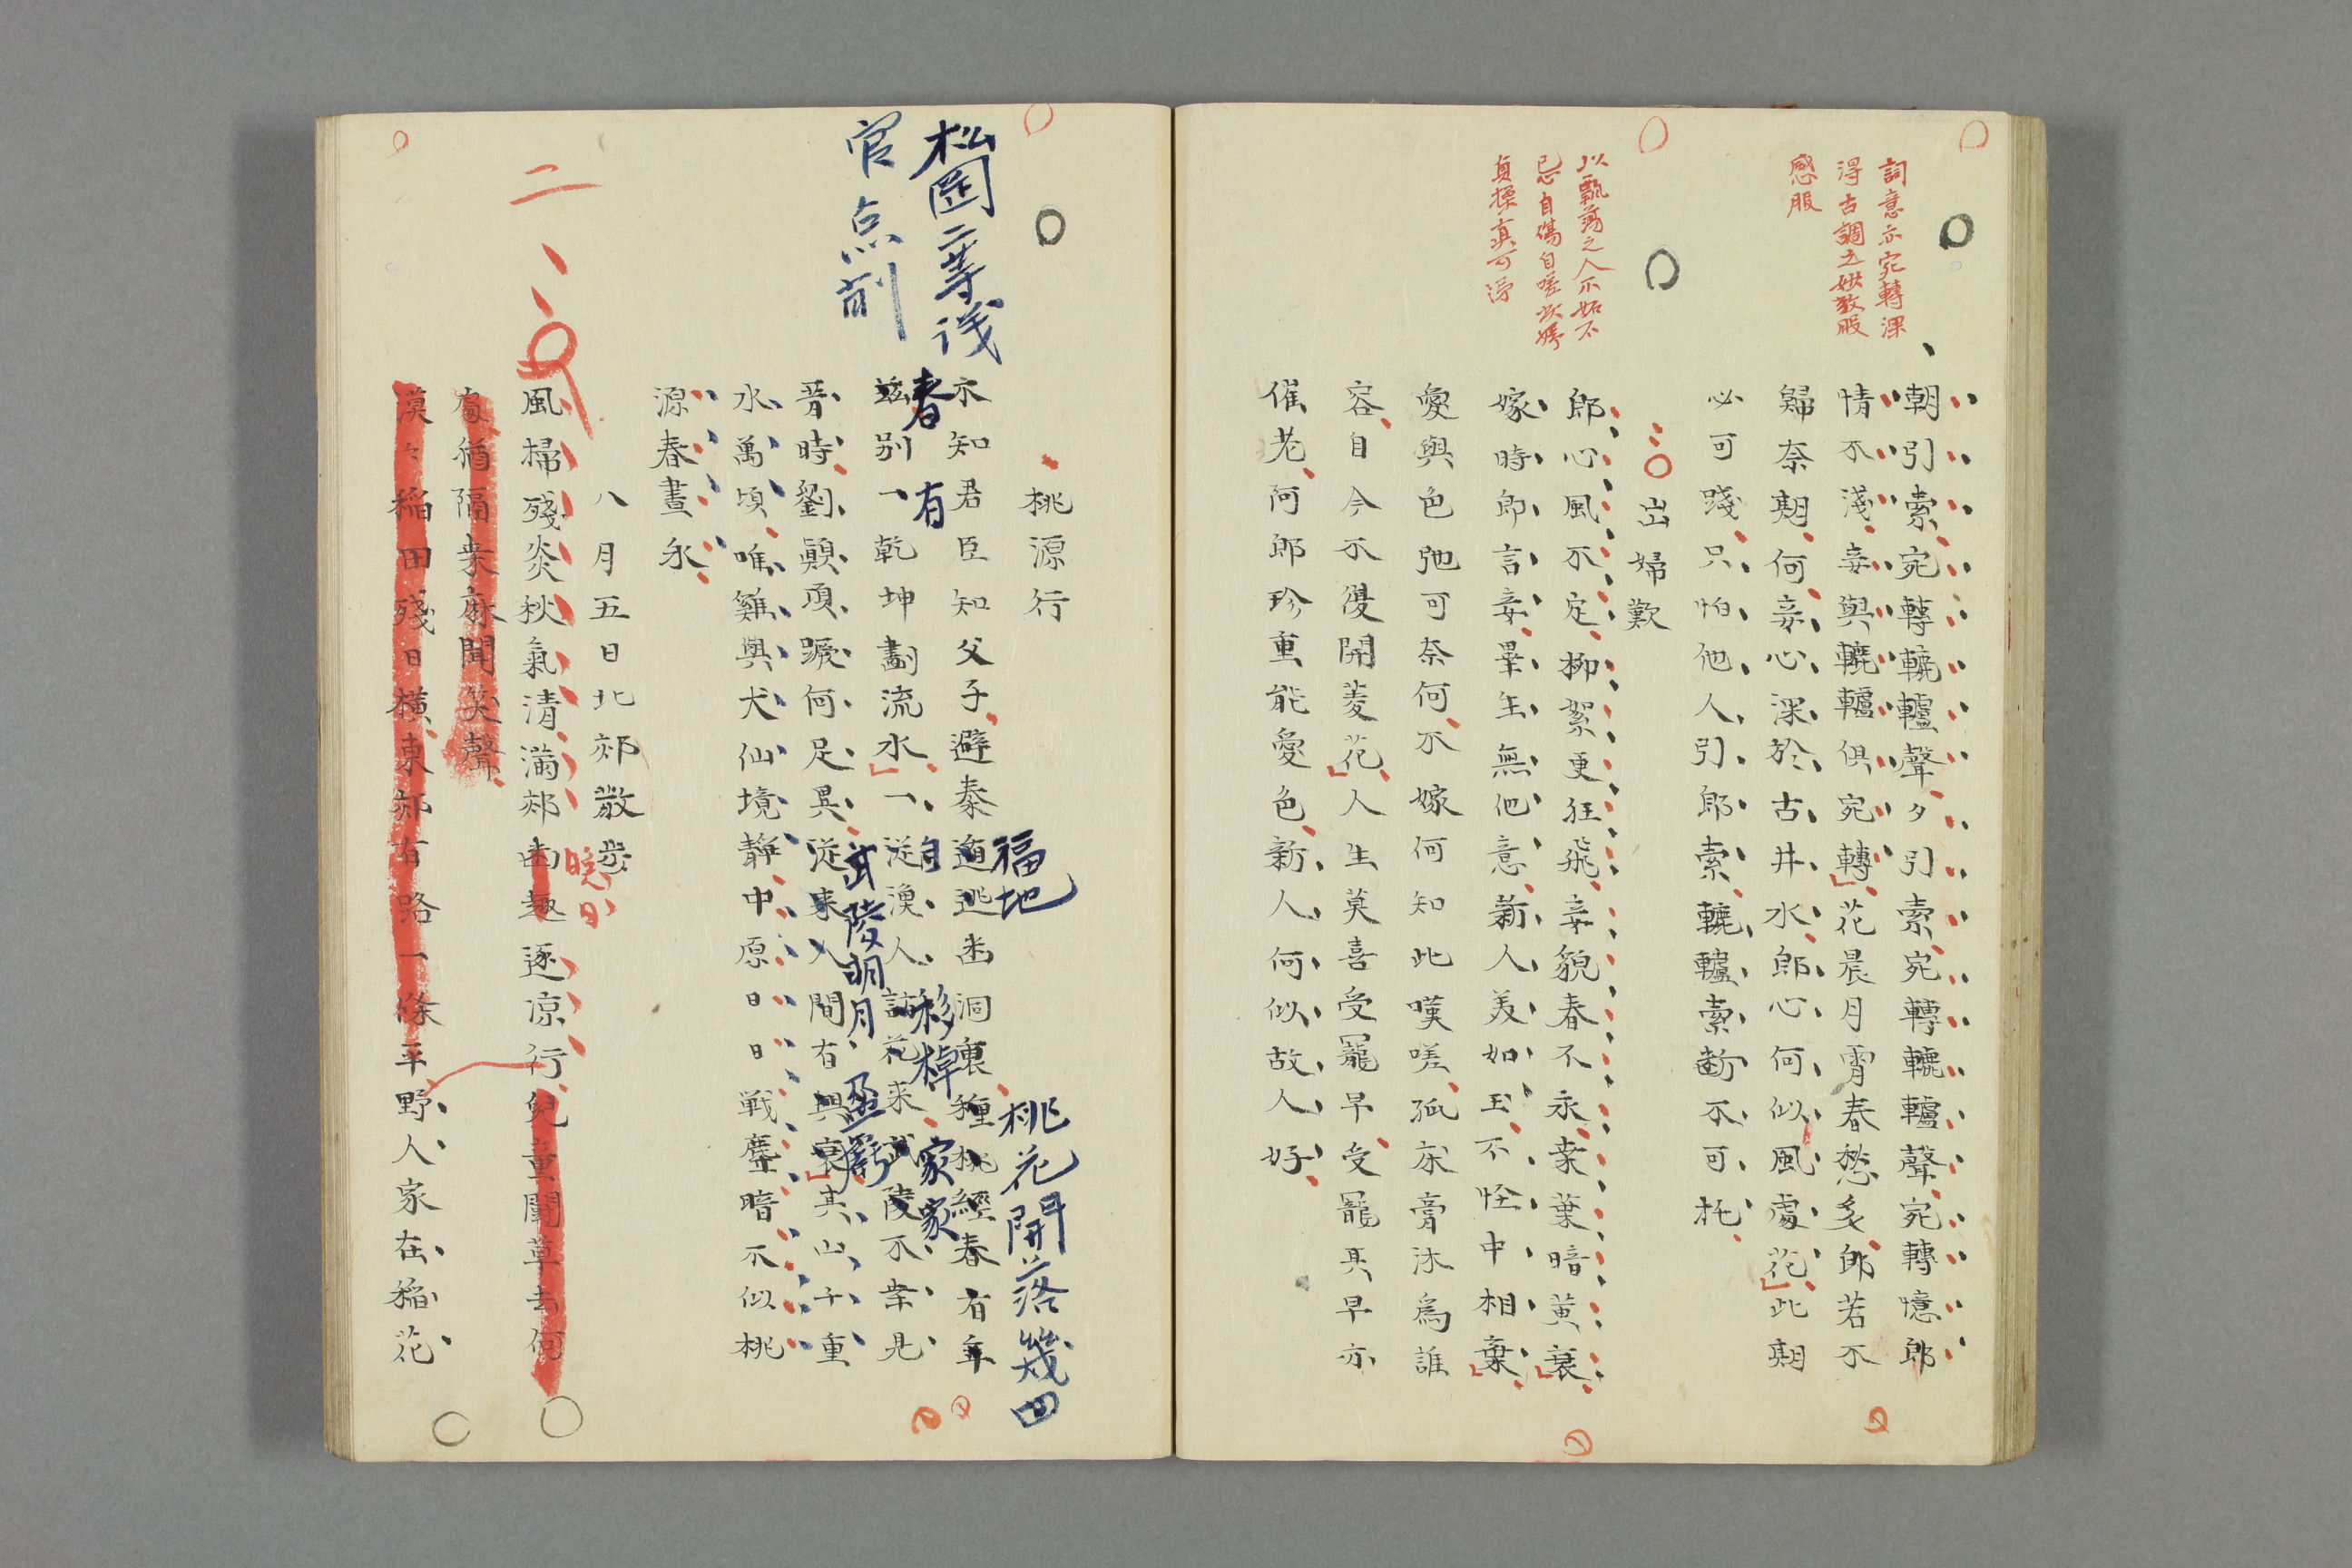 詞意亦宛轉深
得古調之妙敬服
感服
朝引索宛轉轆轤聲夕引索宛轉轆轤聲宛轉憶郎
情不淺妾與轆轤俱宛轉花晨月宵春愁多郎若不
歸奈期何妾心深於古井水郎心何似風處花此期
必可踐只怕他人引郎索轆轤索斷不可托
以飄蕩之人不妬不
忌自傷自嗟
貞操真可
出婦歎
郎心風不定柳絮更狂飛妾貌春不永桒葉暗黄衰
嫁時郎言妾畢生無他意新人美如玉不怪中相棄
愛與色弛可奈何不嫁何知此嘆嗟孤床膏沐爲誰
容自今不復開菱花人生莫喜受寵早受寵早早亦
催老阿郎珍重能愛色新人何似故人好
桃源行
福地
桃花開落幾回
松園二等浅
官点削
不知君臣知父子避秦遁逃幽洞裏種桃經春有年
春有
自
移棹
家家
茲別一乾坤劃流水一從漁人訪花来武陵不桒是
武陵明月
盈虧
晋時劉顛項蹶何足異從来人間有興衰其山千重
水萬頃唯雞與犬仙境静中原日日戦塵暗不似桃
源春晝永
八月五日北郊散歩
晩
二
風掃殘炎秋氣清滿郊幽趣逐凉行兒童鬪草去何
處猶隔桒麻聞笑聲
漠々稲田殘日横東郊有路一條平野人家在稲花